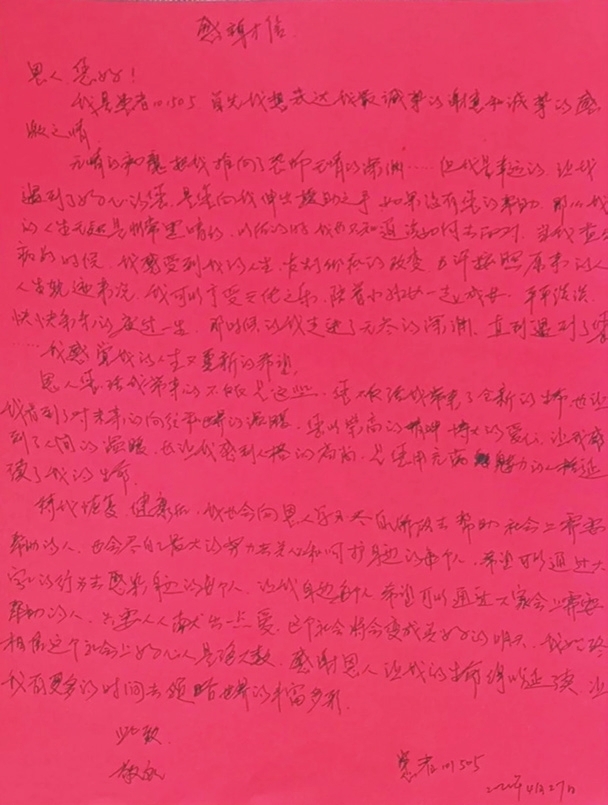 感谢信
恩人您好！
我是患者101505，首先我想表达我最诚挚的谢意和诚挚的感
激之情
无情的病魔把我推向了恐怖无情的深渊……但我是幸运的，让我
遇到了好心的您，是您向我伸出援助之手，如果没有您的帮助，那么我
的人生无疑是非常黑暗的，以后的时候也不知道该如何去面对，当我查出
病的时候，我感受到我的人生，发生了的改变，也许按照原来的人
人生轨迹来说，我可以享受天伦之乐，陪着小孙女一起成长，平平淡淡，
快快乐乐的度过一生，那时候的我走进了无尽的深渊，直到遇到了您
……我感觉我的人生又重新的希望。
恩人您给我带来的不仅是这些，您不仅给我带来了全新的生命，也让
我看到了对未来的向往和世界的温暖，您以崇高的精神博大的爱心，让我感
到了人间的温暖，也让我感到人格的高尚，是您用无穷魅力的人格延
续了我的生命
待我恢复健康后，我也会向恩人那样尽自己所能去帮助社会上需要
帮助的人，也会尽自己最大的努力去关心和呵护身边的每个人，希望可以通过大
家的行为去感染身边的每个人，让我身边每个人希望可以通过大家会上需要
帮助的人，只要人人献出一点爱，这个社会将会变成美好的明天，我始终
相信这个社会上好心人是多数，感谢恩人让我的生命得以延续，让
我有更多的时间去领略世界的丰富多彩
此致
敬礼
患者101505
4月27日